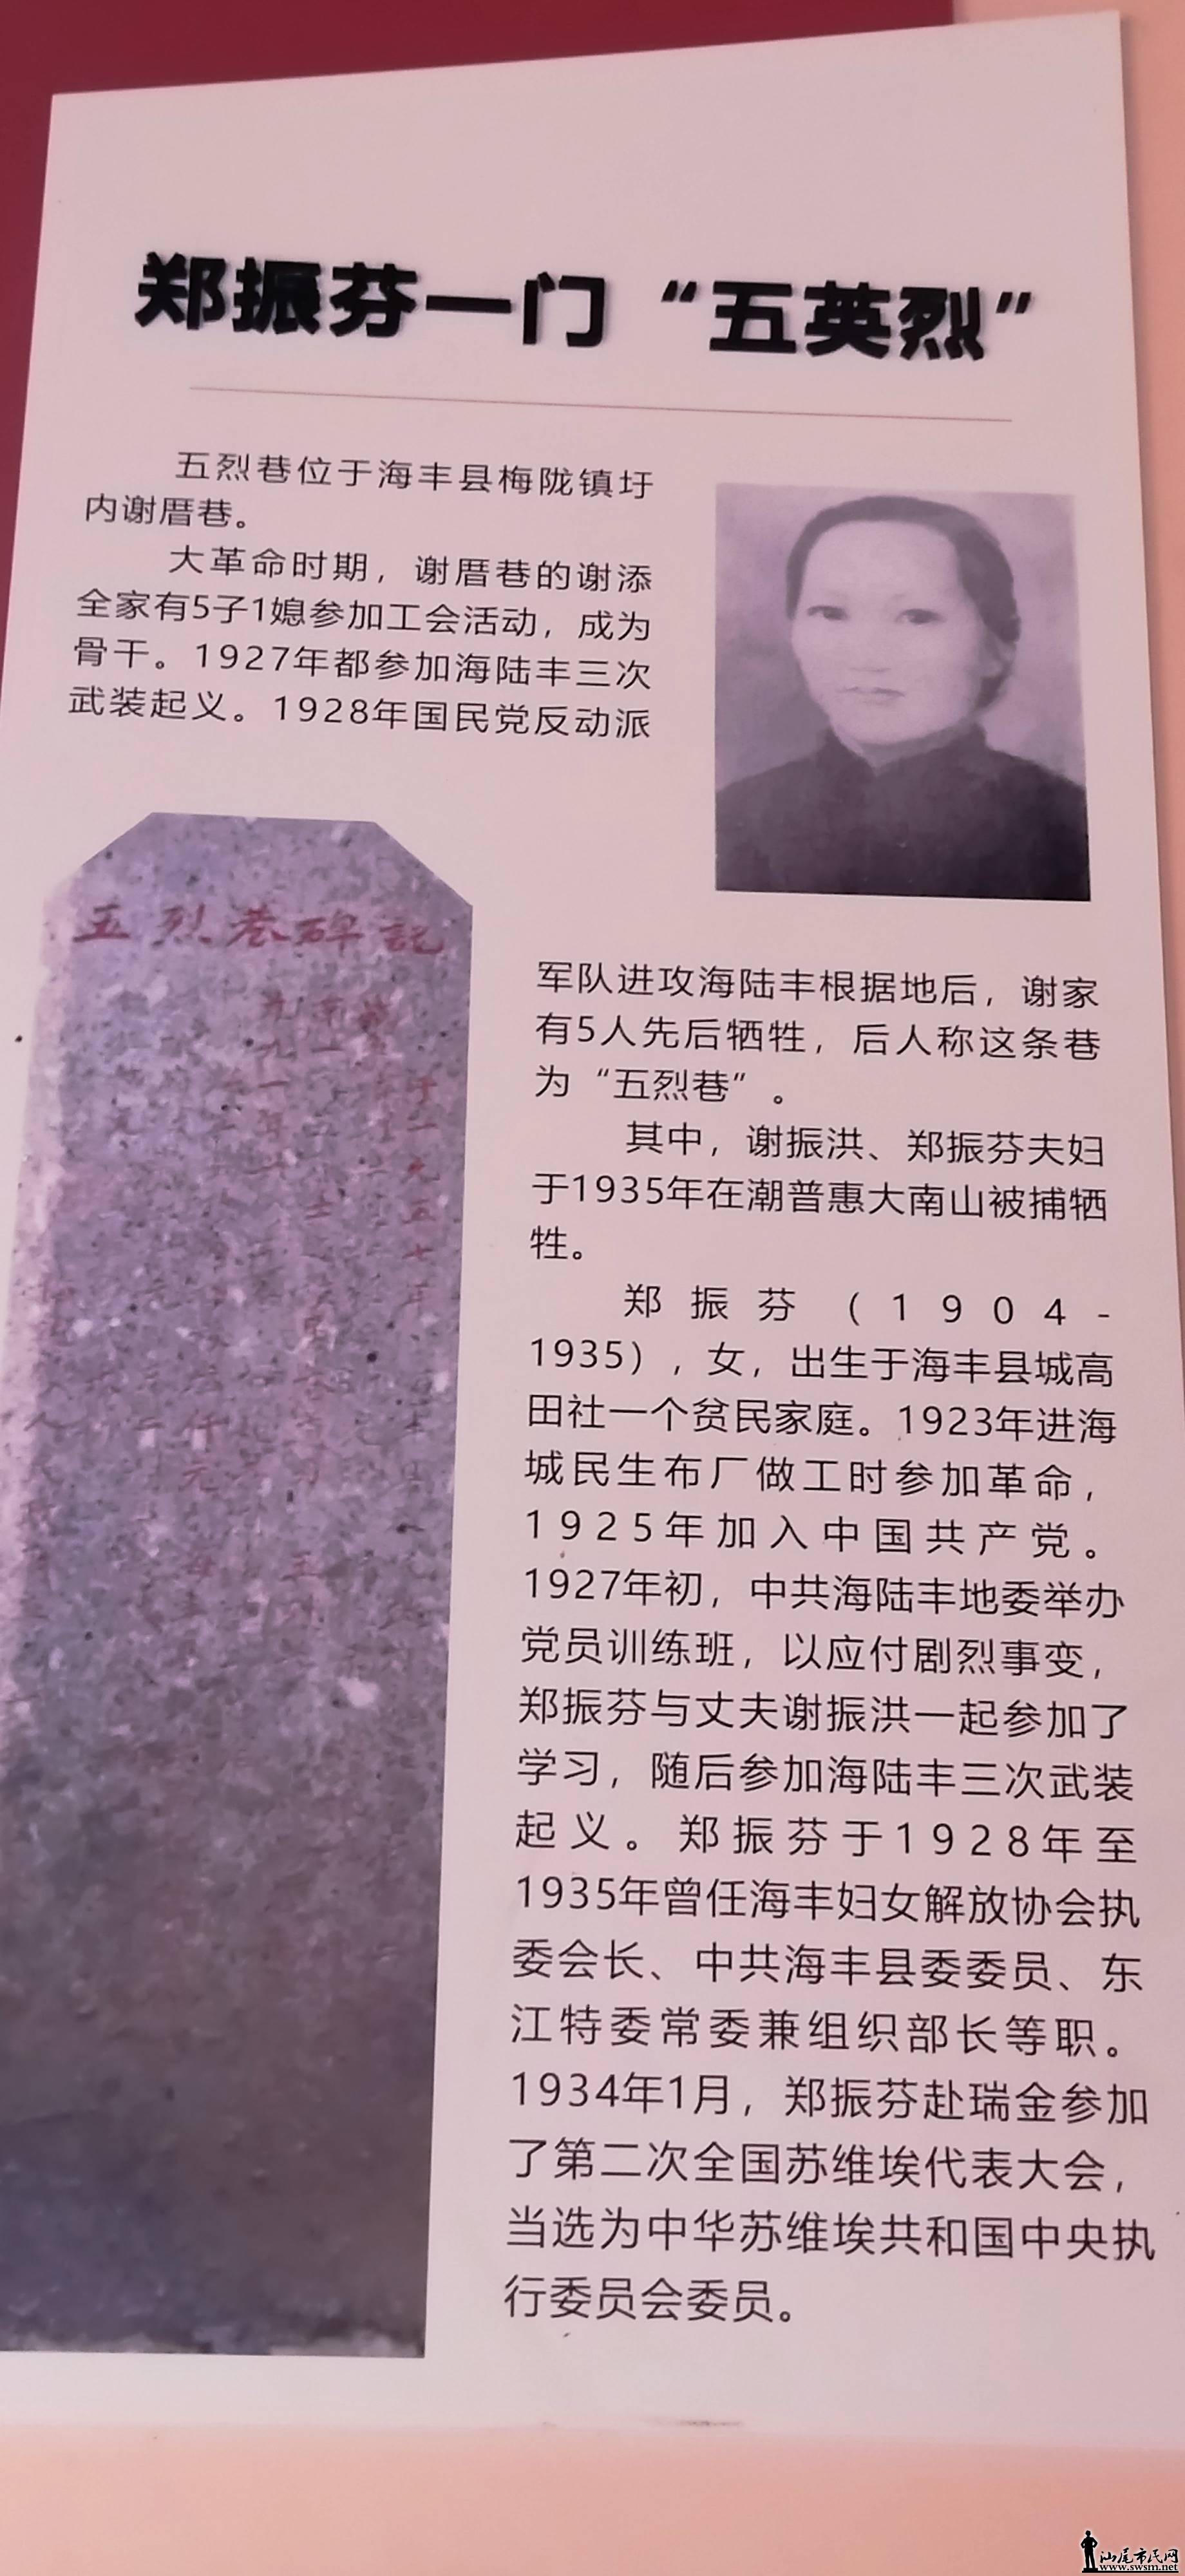 郑振芬一门“五英烈”
五烈巷位于海丰县梅陇镇圩
内谢厝巷。
大革命时期，谢厝巷的谢添
全家有5子1媳参加工会活动，成为
骨干。1927年都参加海陆丰三次
武装起义。1928年国民党反动派
五烈巷碑記
军队进攻海陆丰根据地后，谢家
有5人先后牺牲，后人称这条巷
为“五烈巷”。
其中，谢振洪、郑振芬夫妇
于1935年在潮普惠大南山被捕牺
牲。
郑振芬（1904-
1935），女，出生于海丰县城高
田社一个贫民家庭。1923年进海
城民生布厂做工时参加革命，
1925年加入中国共产党。
1927年初，中共海陆丰地委举办
党员训练班，以应付剧烈事变，
郑振芬与丈夫谢振洪一起参加了
学习，随后参加海陆丰三次武装
起义。郑振芬于1928年至
1935年曾任海丰妇女解放协会执
委会长、中共海丰县委委员、东
江特委常委兼组织部长等职。
1934年1月，郑振芬赴瑞金参加
了第二次全国苏维埃代表大会，
当选为中华苏维埃共和国中央执
行委员会委员。
汕尾市民网
www.swsm.net